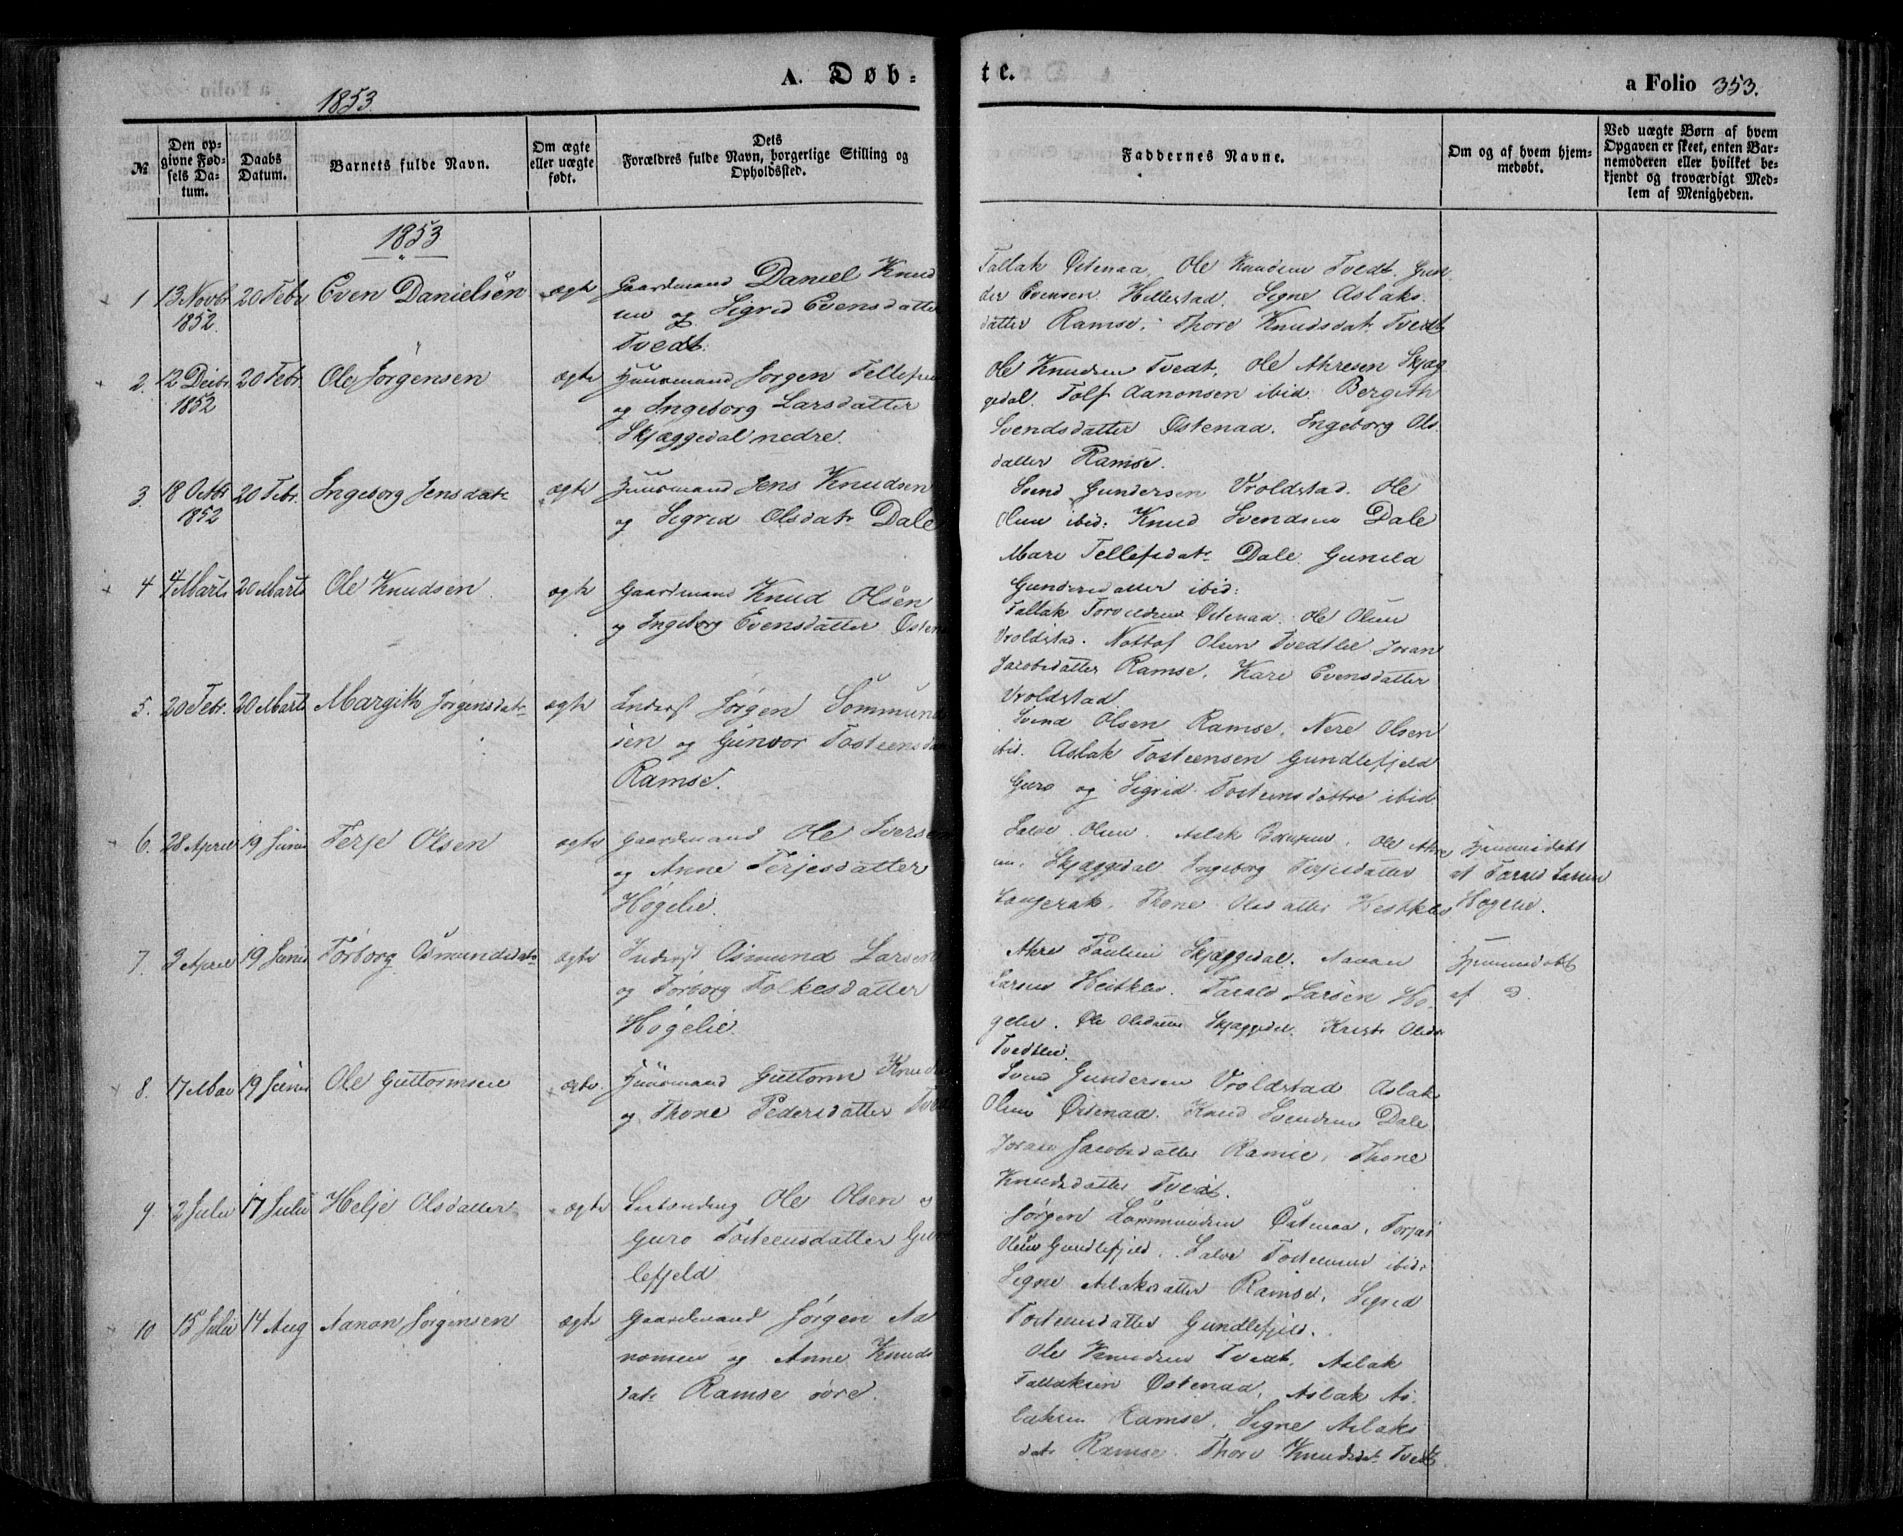 A. Døb-
te.
a Folio 353.
1853.
№
Den op-
givne Fød-
sels Da-
tum.
Daabs
Datum.
Barnets fulde Navn.
Om ægte
eller uægte
født.
Dets
Forældres fulde Navn, borgerlige Stilling og
Opholdssted.
Faddernes Navne.
Om og af hvem hjem-
medøbt.
Ved uægte Børn af hvem
Opgaven er skeet, enten Bar-
nemoderen eller hvilket be-
kjendt og troværdigt Med-
lem af Menigheden.
1853
1 13 Novbr 20 Febr Even Danielsen ægte Gaardmand Daniel Knud
1852. sen og Sigrid Evensdatter
Tvedt.
Tallak Østenaa, Ole Knudsen Tvedt, Gun
der Evensen Hillestad. Signe Aslaks
datter Ramse. Thore Knudsdatr Tvedt
2. 12 Decbr 20 Febr. Ole Jørgensen ægte Huusmand Jørgen Tellefsen
1852 og Ingeborg Larsdatter
Skjæggedal nedre.
Ole Knudsen Tvedt, Ole Akresen Skjæg
gedal. Tolf Aanonsen ibid. Bergith
Svendsdatter Østenaa. Ingeborg Ols
datter Ramse.
3. 18 Octbr 20 Febr. Ingeborg Jensdatr ægte Huusmand Jens Knudsen
1852 og Sigrid Olsdatr Dale
Svend Gundersen Vroldstad. Ole
Olsen ibid: Knud Svendsen Dale
Mari Tellefsdatr Dale Gunild
Gundersdatter ibid:
4 4 Marts 20 Marts Ole Knudsen. ægte Gaardmand Knud Olsen
og Ingeborg Evensdatter Østen
Tallak Torvildsen Østenaa. Ole Olsen
Vroldstad. Nottof Olsen Tvedtlie Joran
Jacobsdatter Ramse, Kari Evensdatter
Vroldstad.
5. 20 Febr. 20 Marts Margith Jørgensdatr ægte Inderst Jørgen Sommund
sen og Gunvor Tosteensdat
Ramse.
Svend Olsen Ramse, Nere Olsen
ibid. Aslak Tosteensen Gundlefjeld
Guro og Sigrid Tosteensdøttre ibid
6. 28 April 19 Juni Terje Olsen ægte Gaardmand Ole Iversen
og Anne Terjesdatter
Høgelie.
Salve Olsen. Aslak, Ole Akre
sen, Skjæggedal Ingeborg Terjesdatter
Thone Olsdatter Heitkles
Hjemmedøbt
af Tarald Larsen
Høgelie.
7. 3 April 19 Juni Torborg Osmundsdatr ægte Inderst Osmund Larsen
og Torborg Folkesdatter
Høgelie.
Akre Skjæggedal. Aanon
Larsen Heitkles. Tarald Larsen Hø
gelie. Ole Skjæggedal. Olsdr
Tvedtlie.
Hjemmedøbt
af do.
8. 17 Mai 19 Juni Ole Guttormsen ægte. Huusmand Guttorm Knuds
og Thone Pedersdatter Tved
Svend Gundersen Vroldstad Aslak
Olsen Østenaa. Knud Svendsen Dale
Joran Jacobsdatter Ramse, Thone
Knudsdatter Tvedt.
9 2 Juli 17 Juli Helje Olsdatter ægte Ole Olsen og
Guro Tosteensdatter Gund
lefjeld
Jørgen Sommundsen Østenaa, Torjus
Olsen Gundlefjeld, Salve Tosteensen ibid.
Signe Aslaksdatter Ramse, Sigrid
Tosteensdatter Gundlefjeld.
10 15 Juli 14 Aug Aanon Jørgensen ægte Gaardmand Jørgen Aa
nonsen og Anne Knuds
datr Ramse øvre.
Ole Knudsen Tvedt, Aslak
Tallaksen Østenaa, Aslak As
laksen Ramse. Signe Aslaks
datr Ramse. Thore Knudsdatr Tvedt.